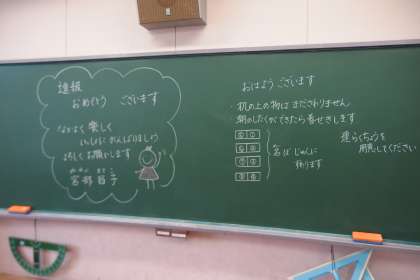 進級
おめでとう ございます
なかよく 楽しく
いっしょに がんばりましょう
よろしく お願いします
宮部
子
おはよう ございます
・机の上の物は まださわりません
・朝のしたくができたら 着せきします
名ぼ じゅんに
わります
連らくちょうを
用意してください